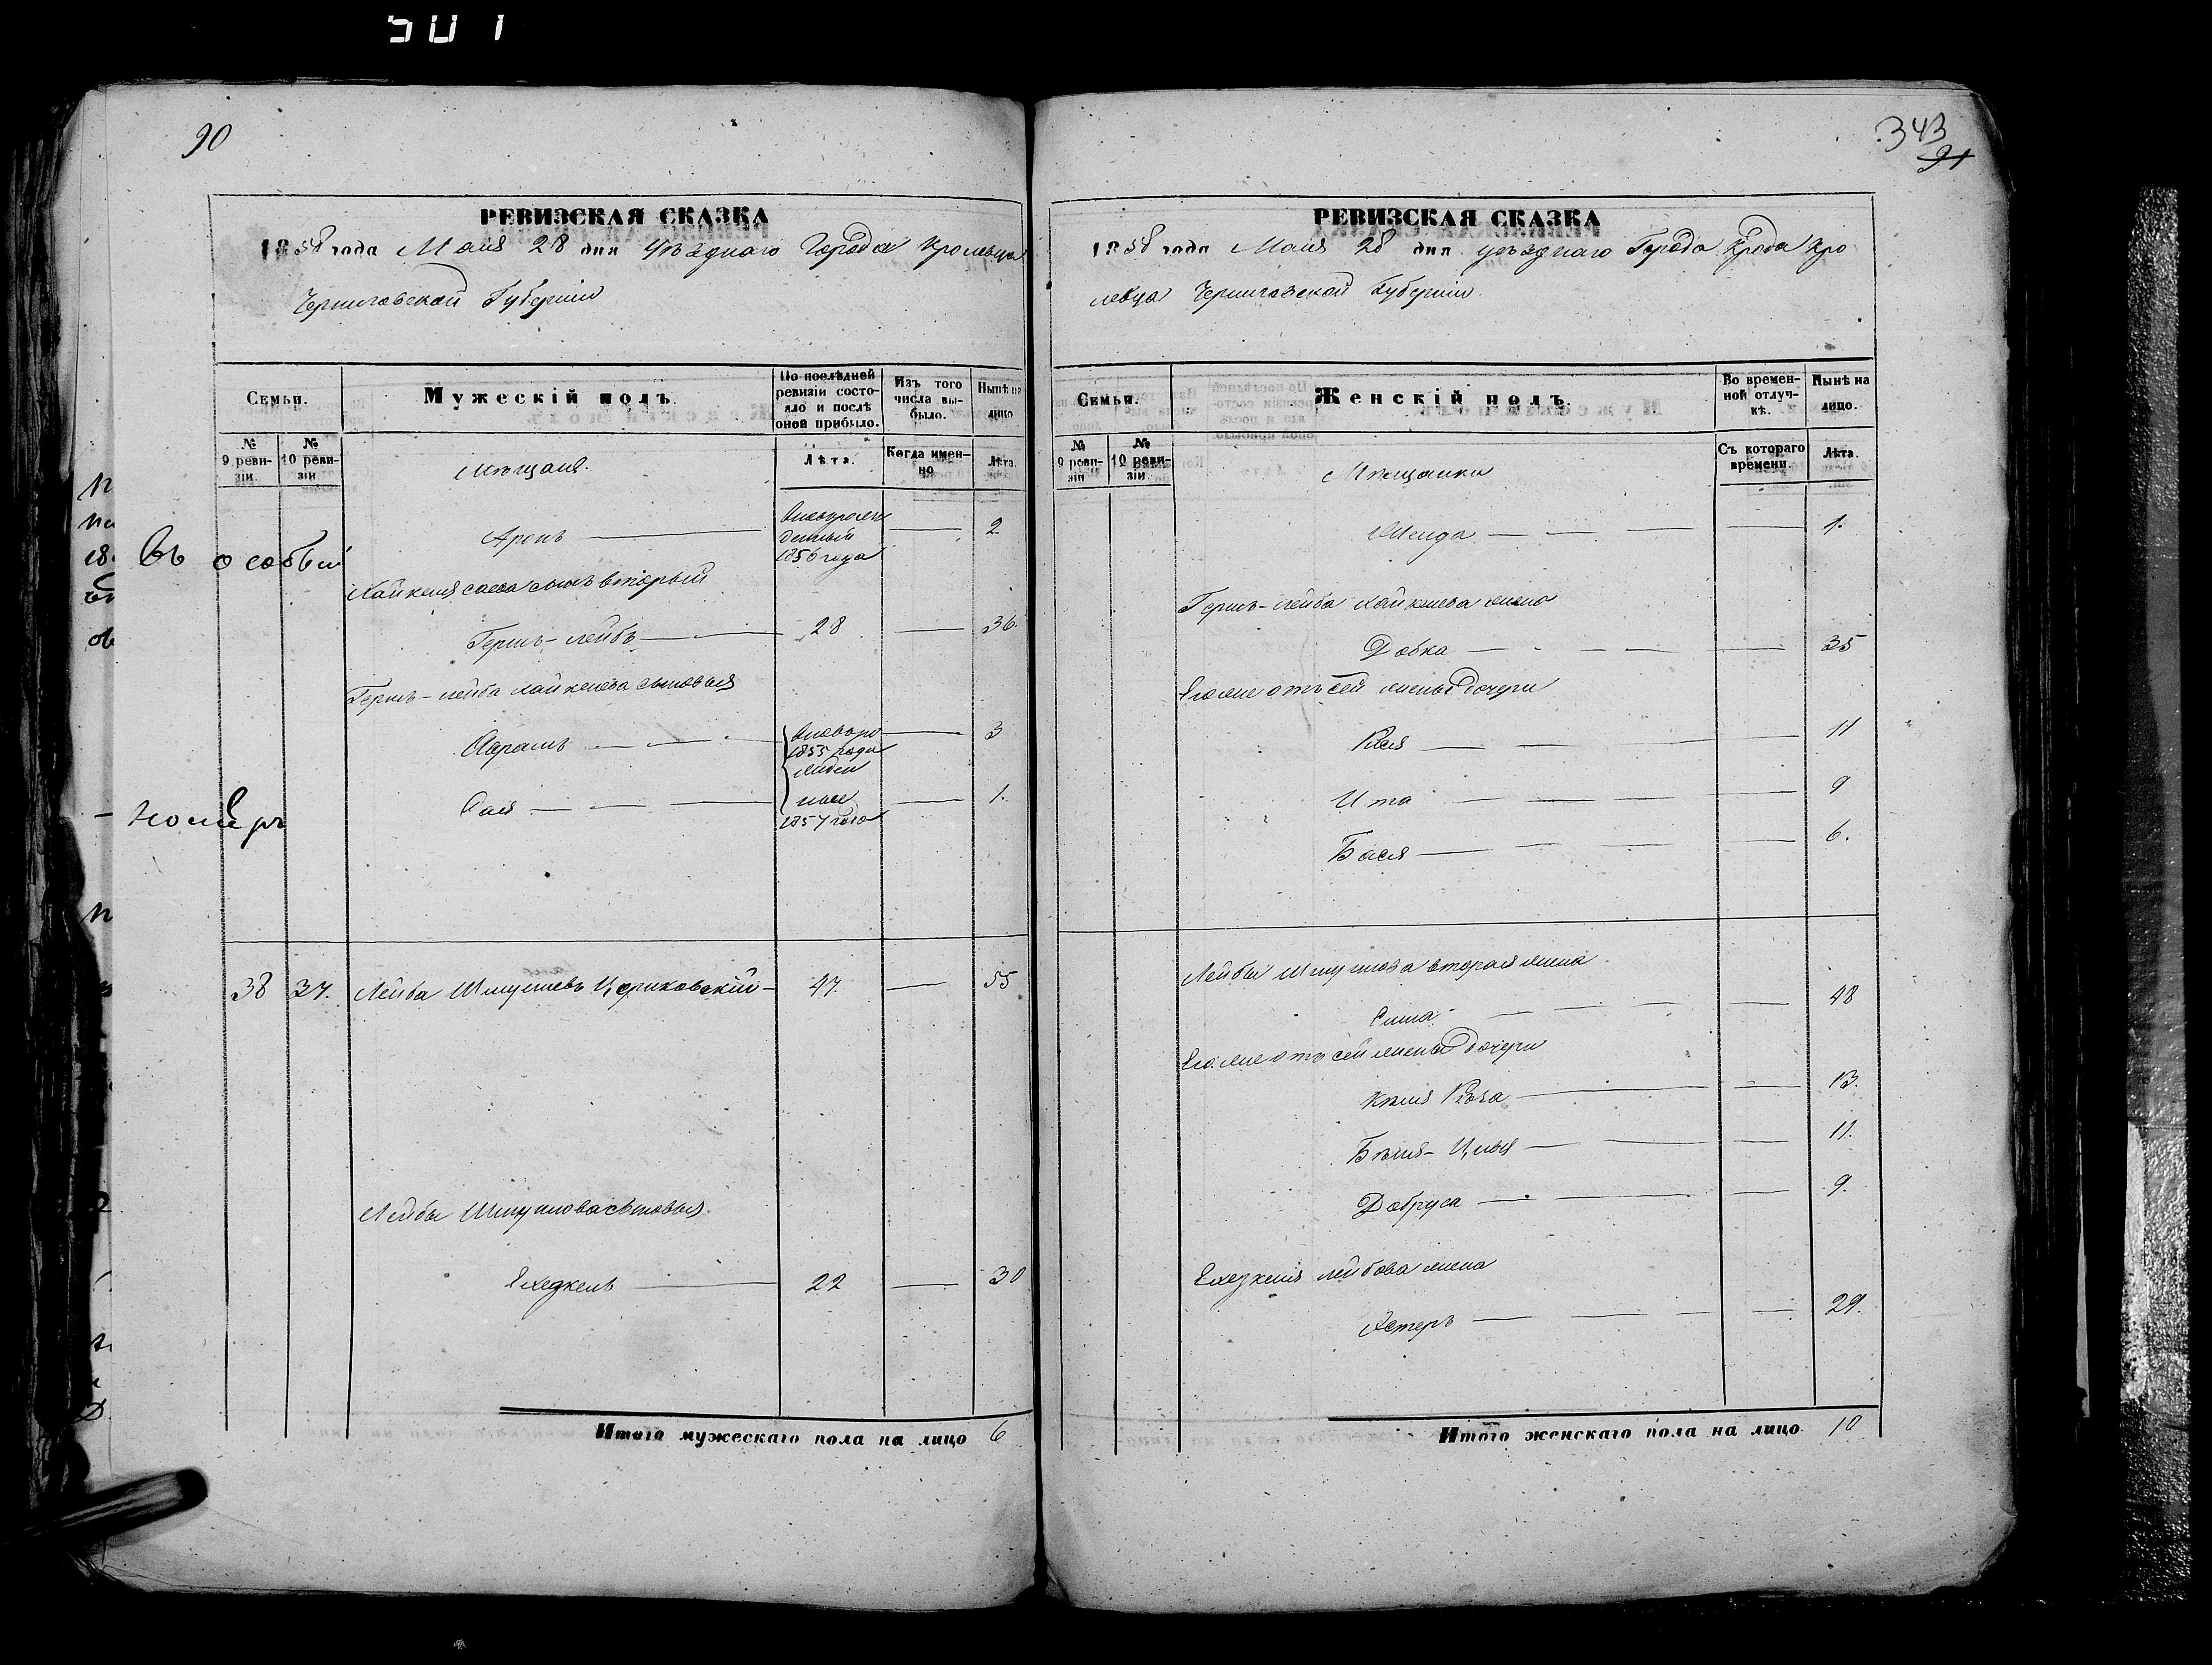 501
90
РЕВИЗСКАЯ СКАЗКА
1858 года Маія 28 дня уѣзднаго Города Кролевца
Черниговской Губерніи
Семьи.
Мужескій полъ.
По послѣдней ревизіи состояло и послѣ оной прибыло.
Изъ того числа выбыло.
Нынѣ на лицо
№ 9 ревизіи.
№ 10 ревизіи
Мѣщане.
Лѣта.
Когда именно
Лѣта.
Въ особый
Аронъ
новорожденный 1856 года
2
сынъ вторый
Гершъ-Лейбъ 28 36.
Гершъ-Лейба Хайкелева сыновья
Абрамъ
новоро 1855 года
3
ждены
1857 года
1.
номеръ
38 37. Лейба Шмулевъ Цориковскій 47. 55
Лейбы Шмулова сыновья.
Ехезкель 22 30
Итого мужескаго пола на лицо 6
343
91
РЕВИЗСКАЯ СКАЗКА
1858 года Маія 28 дня уѣзднаго Города Города Кро
левца Черниговской Губерніи.
Семьи.
Женскій полъ.
Во временной отлучкѣ.
Нынѣ на лицо.
№ 9 ревизіи
№ 10 ревизіи.
Мѣщанки
Съ котораго времени.
Лѣта.
1.
Гершъ-Лейба Хайкелева жена
Добка 35
Его же отъ сей жены дочери
11
Ита 9
Бася 6.
Лейбы Шмулова вторая жена
48
Его же отъ сей жены дочери
13.
11.
Добруса 9.
Ехезкеля Лейбова жена
Естеръ 29.
Итого женскаго пола на лицо. 10